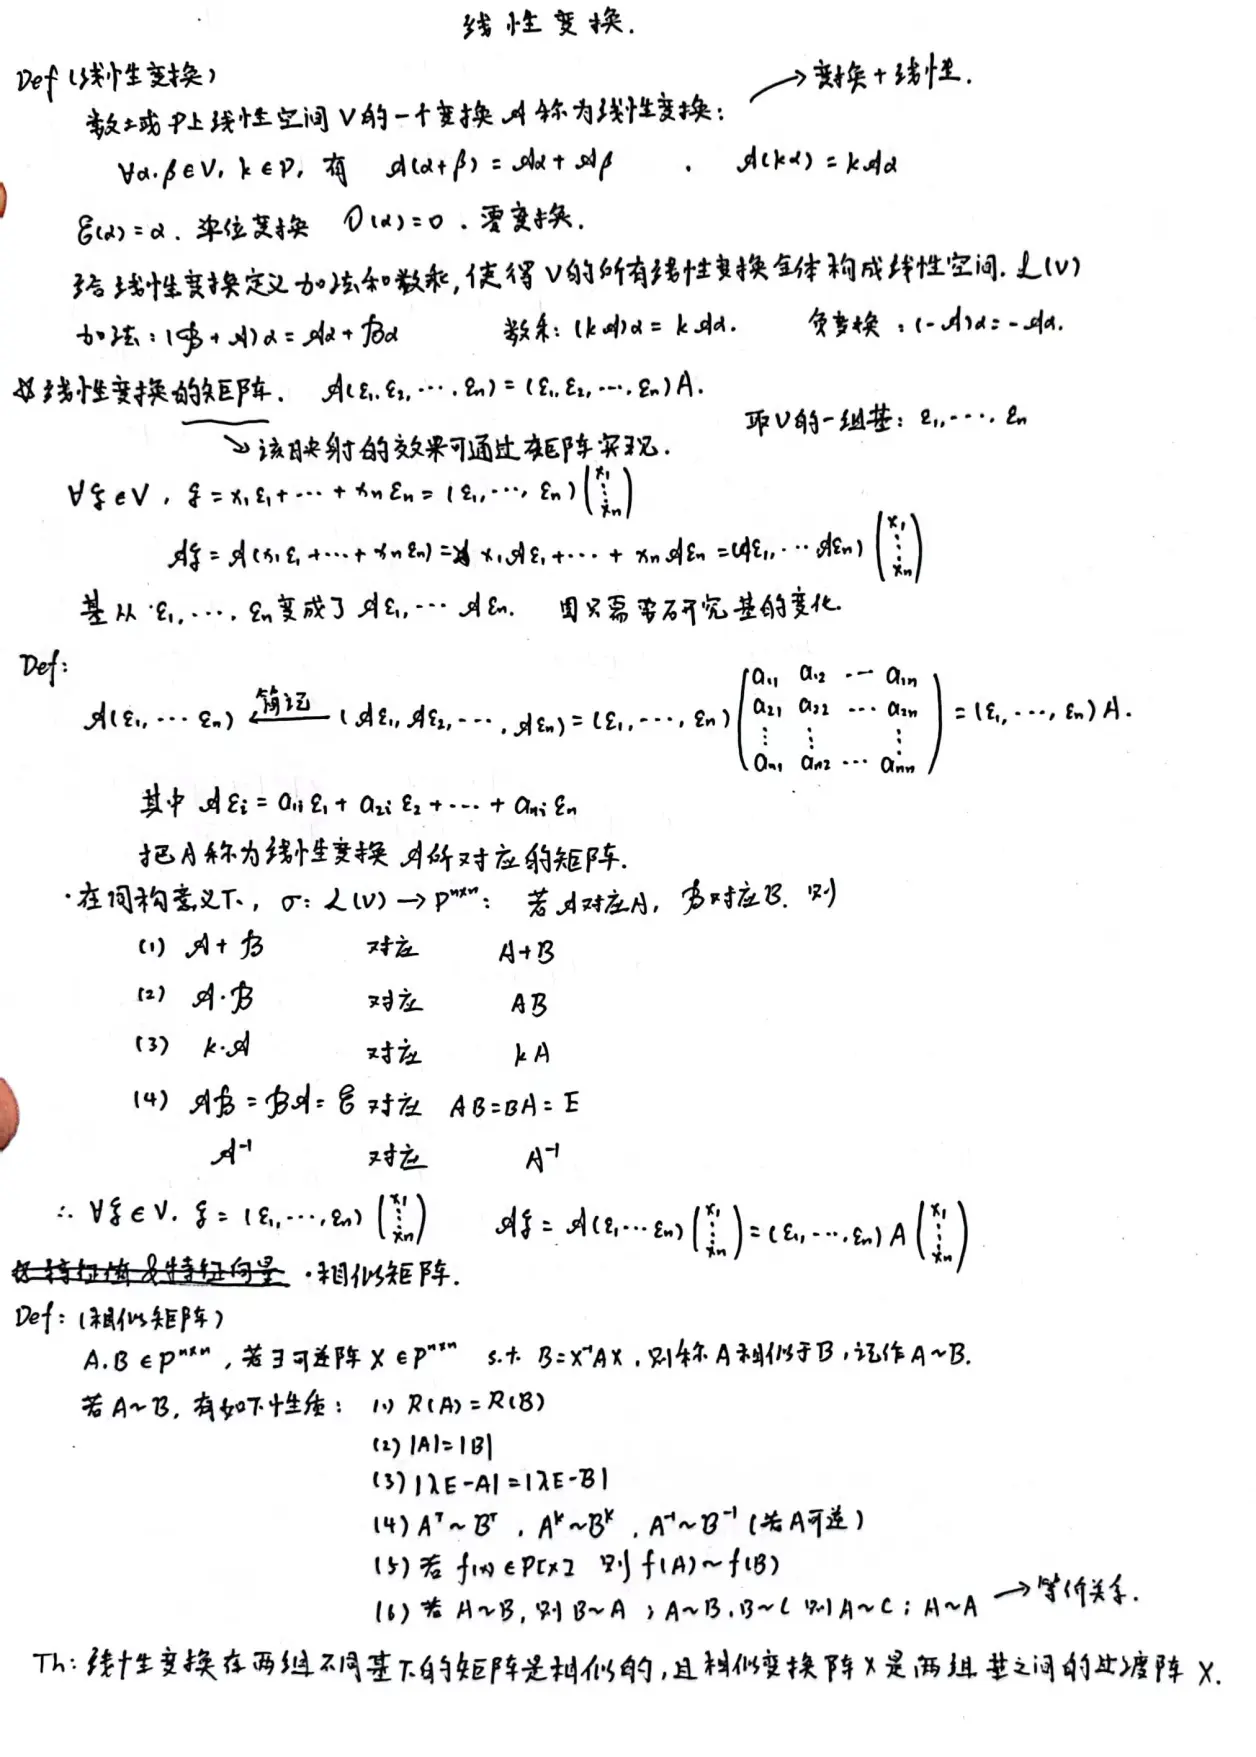 线性变换.
Def (线性变换)
→ 变换 + 线性.
数域 P 上线性空间 V 的一个变换 𝒜 称为线性变换:
∀α.β∈V, k∈P, 有 𝒜(α+β) = 𝒜α + 𝒜β . 𝒜(kα) = k𝒜α
ℰ(α)=α. 单位变换 𝒪(α)=0. 零变换.
给线性变换定义加法和数乘, 使得 V 的所有线性变换全体构成线性空间. ℒ(V)
加法: (ℬ + 𝒜)α = 𝒜α + ℬα 数乘: (k𝒜)α = k𝒜α. 负变换: (-𝒜)α = -𝒜α.
☆ 线性变换的矩阵. 𝒜(ε₁, ε₂, ···, εₙ) = (ε₁, ε₂, ···, εₙ)A.
取 V 的一组基: ε₁, ···, εₙ
↘ 该映射的效果可通过矩阵实现.
∀ξ∈V, ξ = x₁ε₁ + ··· + xₙεₙ = (ε₁, ···, εₙ) (x₁ ⋮ xₙ)
𝒜ξ = 𝒜(x₁ε₁ + ··· + xₙεₙ) = x₁𝒜ε₁ + ··· + xₙ𝒜εₙ = (𝒜ε₁, ··· 𝒜εₙ) (x₁ ⋮ xₙ)
基从 ε₁, ···, εₙ 变成了 𝒜ε₁, ··· 𝒜εₙ. 只需要研究基的变化.
Def:
𝒜(ε₁, ··· εₙ) ←简记— (𝒜ε₁, 𝒜ε₂, ···, 𝒜εₙ) = (ε₁, ···, εₙ) (a₁₁ a₁₂ ··· a₁ₙ a₂₁ a₂₂ ··· a₂ₙ ⋮ ⋮ ⋮ aₙ₁ aₙ₂ ··· aₙₙ) = (ε₁, ···, εₙ)A.
其中 𝒜εᵢ = a₁ᵢε₁ + a₂ᵢε₂ + ··· + aₙᵢεₙ
把 A 称为线性变换 𝒜 所对应的矩阵.
· 在同构意义下, σ: ℒ(V) → Pⁿˣⁿ: 若 𝒜 对应 A, ℬ 对应 B. 则
(1) 𝒜 + ℬ 对应 A+B
(2) 𝒜·ℬ 对应 AB
(3) k·𝒜 对应 kA
(4) 𝒜ℬ = ℬ𝒜 = ℰ 对应 AB=BA=E
𝒜⁻¹ 对应 A⁻¹
∴ ∀ξ∈V. ξ = (ε₁, ···, εₙ) (x₁ ⋮ xₙ) 𝒜ξ = 𝒜(ε₁ ··· εₙ) (x₁ ⋮ xₙ) = (ε₁, ···, εₙ) A (x₁ ⋮ xₙ)
特征值&特征向量 · 相似矩阵.
Def: (相似矩阵)
A.B∈Pⁿˣⁿ, 若∃可逆阵 X∈Pⁿˣⁿ s.t. B=X⁻¹AX, 则称 A 相似于 B, 记作 A~B.
若 A~B, 有如下性质: (1) R(A)=R(B)
(2) |A|=|B|
(3) |λE-A|=|λE-B|
(4) Aᵀ~Bᵀ, Aᵏ~Bᵏ, A⁻¹~B⁻¹ (若A可逆)
(5) 若 f(x)∈P[x] 则 f(A)~f(B)
(6) 若 A~B, 则 B~A; A~B, B~C 则 A~C; A~A → 等价关系.
Th: 线性变换在两组不同基下的矩阵是相似的, 且相似变换阵 X 是两组基之间的过渡阵 X.